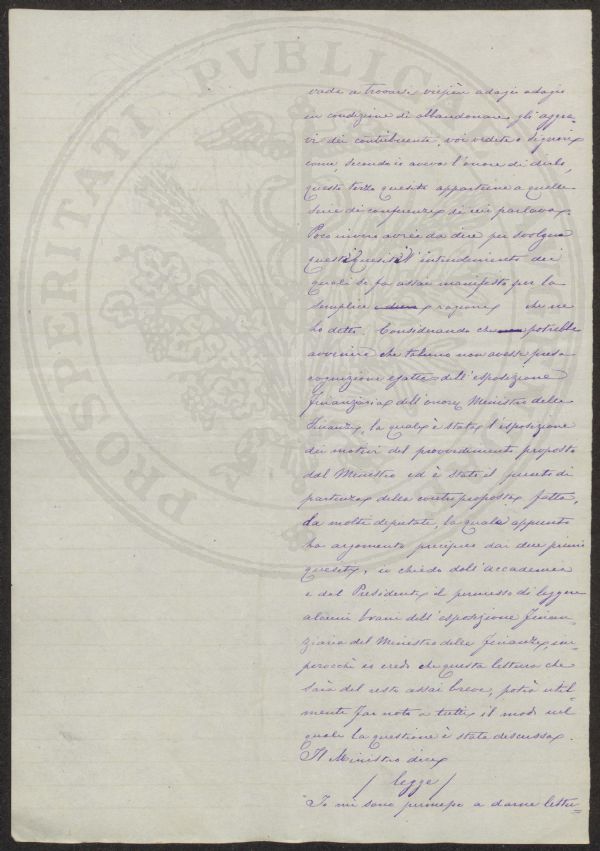 vada a trovare vieppiù adagio adagio
in condizione di abbandonare gli aggra-
vi dei contribuenti, voi vedete o Signori
come, secondo io aveva l'onore di dirlo,
questo terzo quesito appartiene a quella
serie di conferenze di cui parlava.
Poco invero avrei da dire per svolgere
questi quesiti l'intendimento dei
quali si fa assai manifesto per la
semplice ragione che ne
ho detto. Considerando che potrebbe
avvenire che taluno non avesse presa
cognizione esatta dell'esposizione
finanziaria dell'onore Ministro delle
Finanze, la quale è stata l'esposizione
dei motivi del provvedimento proposto
dal Ministro ed è stato il punto di
partenza della controproposta fatta,
da molti deputati, la quale appunto
ha argomento precipuo dai due primi
quesiti, io chiedo dall'accademia
e dal Presidente il permesso di leggere
alcuni brani dell'esposizione finan-
ziaria del Ministro delle Finanze, im-
perocchè io credo che questa lettura che
sarà del resto assai breve, potrà util-
mente far noto a tutti il modo nel
quale la questione è stata discussa.
Il Ministro dice
/ legge /
"Io mi sono permesso a darne lettu-
PROSPERITATI PVBLICAE